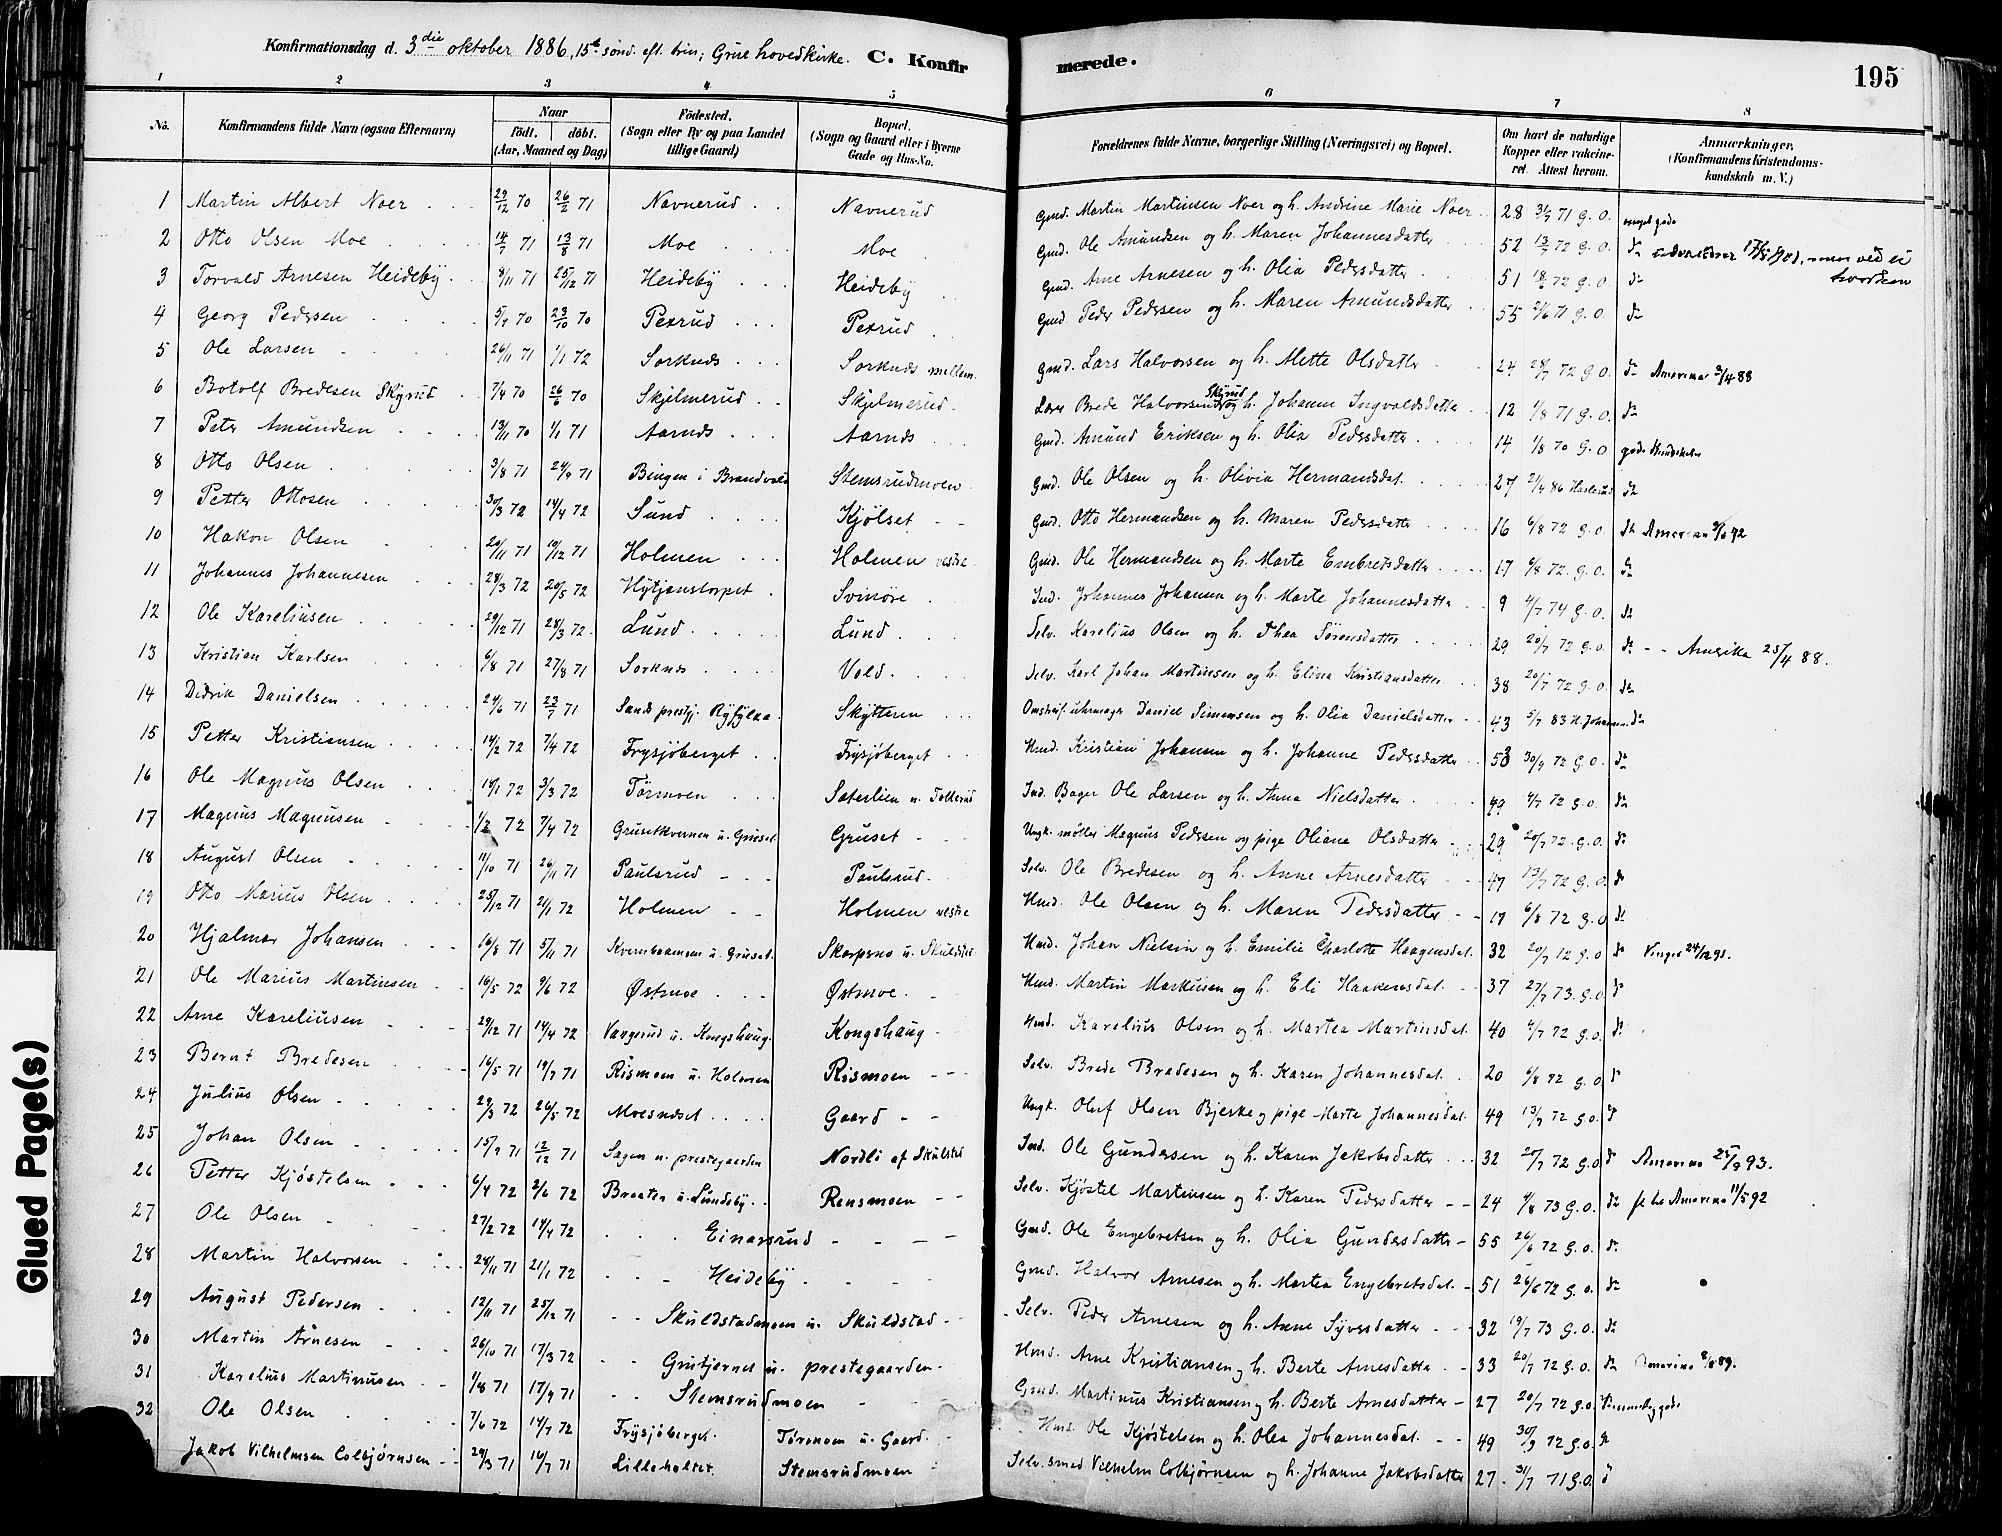 Konfirmationsdag d. 3die oktober 1886, 15d sönd. eft. trin; Grue hovedkirke. C. Konfir merede. 195
1 2 3 4 5 6 7 8
No. Konfirmandens fulde Navn (ogsaa Efternavn) Naar födt. döbt. (Aar, Maaned og Dag) Födested. (Sogn eller By og paa Landet tillige Gaard) Bopæl. (Sogn og Gaard eller i Byerne Gade og Hus-No. Forældrenes fulde Navne, borgerlige Stilling (Næringsvei) og Bopæl. Om havt de naturlige Kopper eller vakcineret. Attest herom. Anmærkninger. (Konfirmandens Kristendomskundskab m. V.)
1 Martin Albert Noer 29/12 70 26/2 71 Navnerud Navnerud Gmd. Martin Martinsen Noer og h. Andrine Marie Noer 28 3/9 71 G.O. meget gode
2 Otto Olsen Moe 14/7 71 13/8 71 Moe Moe Gmd. Ole Amundsen og h. Maren Johannesdatter 52 13/7 72 G.O. do
3 Torvald Arnesen Heideby 8/11 71 25/12 71 Heideby Heideby Gmd. Arne Arnesen og h. Olia Pedersdatter 51 18/6 72 G.O. do
4 Georg Pedersen 5/9 70 23/10 70 Pexrud Pexrud Gmd. Peder Pedersen og h. Maren Amundsdatter 55 21/6 71 G.O. do
5 Ole Larsen 26/11 71 1/1 72 Sorknes Sorknes mellem Gmd. Lars Halvorsen og h. Mette Olsdatter 24 28/7 72 G.O. do Amerika 3/4 88
6 Botolf Bredesen Skyrud 7/4 70 26/6 70 Skjelmerud Skjelmerud Lærer Brede Halvorsen Skyrud og h. Johanne Ingvaldsdatter 12 1/8 71 G.O. do
7 Peter Amundsen 13/11 70 1/1 71 Aarnes Aarnes Gmd. Amund Eriksen og h. Olia Pedersdatter 14 1/8 70 G.O. gode kundskaber
8 Otto Olsen 3/8 71 24/9 71 Bingen i Brandvold Stemsrudmoen Gmd. Ole Olsen og h. Olivia Hermansdat. 27 21/4 86 do
9 Petter Ottosen 30/3 72 14/4 72 Sund Kjølset Gmd. Otto Hermandsen og h. Maren Pedersdatter 16 6/8 72 G.O. do Amerika 92
10 Hakon Olsen 20/11 71 10/12 71 Holmen Holmen vestre Gmd. Ole Hermandsen og h. Marte Embretsdatter 17 6/8 72 G.O. do
11 Johannes Johannesen 28/3 72 20/5 72 Hytjanstorpet Svinore Ind. Johannes Johansen og h. Marte Johannesdatter 9 4/7 74 G.O. do
12 Ole Kareliusen 29/12 71 28/3 72 Lund Lund Selv. Karelius Olsen og h. Thea Sørensdatter 29 20/7 72 G.O. do Amerika 25/4 88.
13 Kristian Karlsen 6/8 71 27/8 71 Sorknes Vold Selv. Karl Johan Martinsen og h. Elina Kristiansdatter 38 20/7 72 G.O. do
14 Didrik Danielsen 24/6 71 23/7 71 Sands prestgj. Ryfylke Skytteren Omstreif. uhrmager Daniel Simonsen og h. Olia Danielsdatter 43 5/7 83 do
15 Petter Kristiansen 14/2 72 7/4 72 Frysjøberget Frysjøberget Hmd. Kristian Johansen og h. Johanne Pedersdatter 53 30/9 72 G.O. do
16 Ole Magnus Olsen 14/1 72 3/3 72 Tørmoen Sæterlien u. Tollerud Ind. Bager Ole Larsen og h. Anna Nielsdatter 49 4/7 72 G.O. do
17 Magnus Magnusen 1/2 72 7/4 72 Grusetkvernen u. Gruset Gruset Ungk. møller Magnus Pedersen og pige Oliane Olsdatter 29 20/7 72 G.O. do
18 August Olsen 11/10 71 26/11 71 Paulsrud Paulsrud Selv. Ole Bredesen og h. Anne Arnesdatter 47 13/7 72 G.O. do
19 Otto Marius Olsen 25/12 71 21/1 72 Holmen Holmen vestre Hmd. Ole Olsen og h. Maren Pedersdatter 19 6/8 72 G.O. do
20 Hjalmar Johansen 16/8 71 5/11 71 Kvernbaamoen u. Gruset Skarpsno u. Skulstad Hmd. Johan Nielsen og h. Emilie Charlotte Haagensdat. 32 20/7 72 G.O. do Vinger 24/12 91.
21 Ole Marius Martinsen 16/5 72 9/6 72 Østmoe Østmoe Hmd. Martin Markusen og h. Eli Haakensdat. 37 27/7 73 G.O. do
22 Arne Kareliusen 29/12 71 14/4 72 Vargerud u. Kongshaug Kongshaug Hmd. Karelius Olsen og h. Martea Martinsdat. 40 4/7 72 G.O. do
23 Bernt Bredesen 16/5 71 19/7 71 Rismoen u. Holmen Rismoen Selv. Brede Bredesen og h. Karen Johannesdat. 20 6/8 72 G.O. do
24 Julius Olsen 22/3 72 26/5 72 Moesneset Gaard Ungk. Oluf Olsen Bjerke og pige Marte Johannesdat. 49 13/7 72 G.O. do
25 Johan Olsen 15/7 71 12/12 71 Sagen u. prestegaarden Nordli af Skulstad Ind. Ole Gundersen og h. Karen Jakobsdatter 32 20/7 72 G.O. do Amerika 25/9 93.
26 Petter Kjøstelsen 6/4 72 2/6 72 Braaten u. Lundeby Rensmoen Selv. Kjøstel Martinsen og h. Karen Pedersdatter 24 9/8 73 G.O. do Amerika 11/5 92
27 Ole Olsen 27/2 72 14/4 72 Einarsrud Gmd. Ole Engebretsen og h. Olia Gundersdatter 55 26/6 72 G.O. do
28 Martin Halvorsen 28/11 71 21/1 72 Heideby Gmd. Halvor Arnesen og h. Martea Engebretsdat. 51 26/6 72 G.O. do
29 August Pedersen 12/11 71 25/12 71 Skuldstadmoen u. Skuldstad Selv. Peder Arnesen og h. Anne Syversdatter 32 19/7 73 G.O. do
30 Martin Arnesen 26/10 71 17/3 72 Grutjernet u. prestegaarden Hmd. Arne Kristiansen og h. Berte Arnesdatter 33 20/7 72 G.O. do Amerika 8/8 89.
31 Karelius Martinusen 1/8 71 17/9 71 Stemsrudmoen Gmd. Martinus Kristiansen og h. Berte Arnesdatter 27 20/7 72 G.O.
32 Ole Olsen 7/6 72 14/7 72 Frysjøberget Tørmoen u. Gaard Hmd. Ole Kjøstelsen og h. Olea Johannesdat. 49 30/9 72 G.O. do
Jakob Vilhelmsen Colbjørnsen 29/3 71 16/7 71 Lilleholtet Stemsrudmoen Selv. smed Vilhelm Colbjørnsen og h. Johanne Jakobsdatter 27 31/7 71 G.O. do
Glued Page(s)